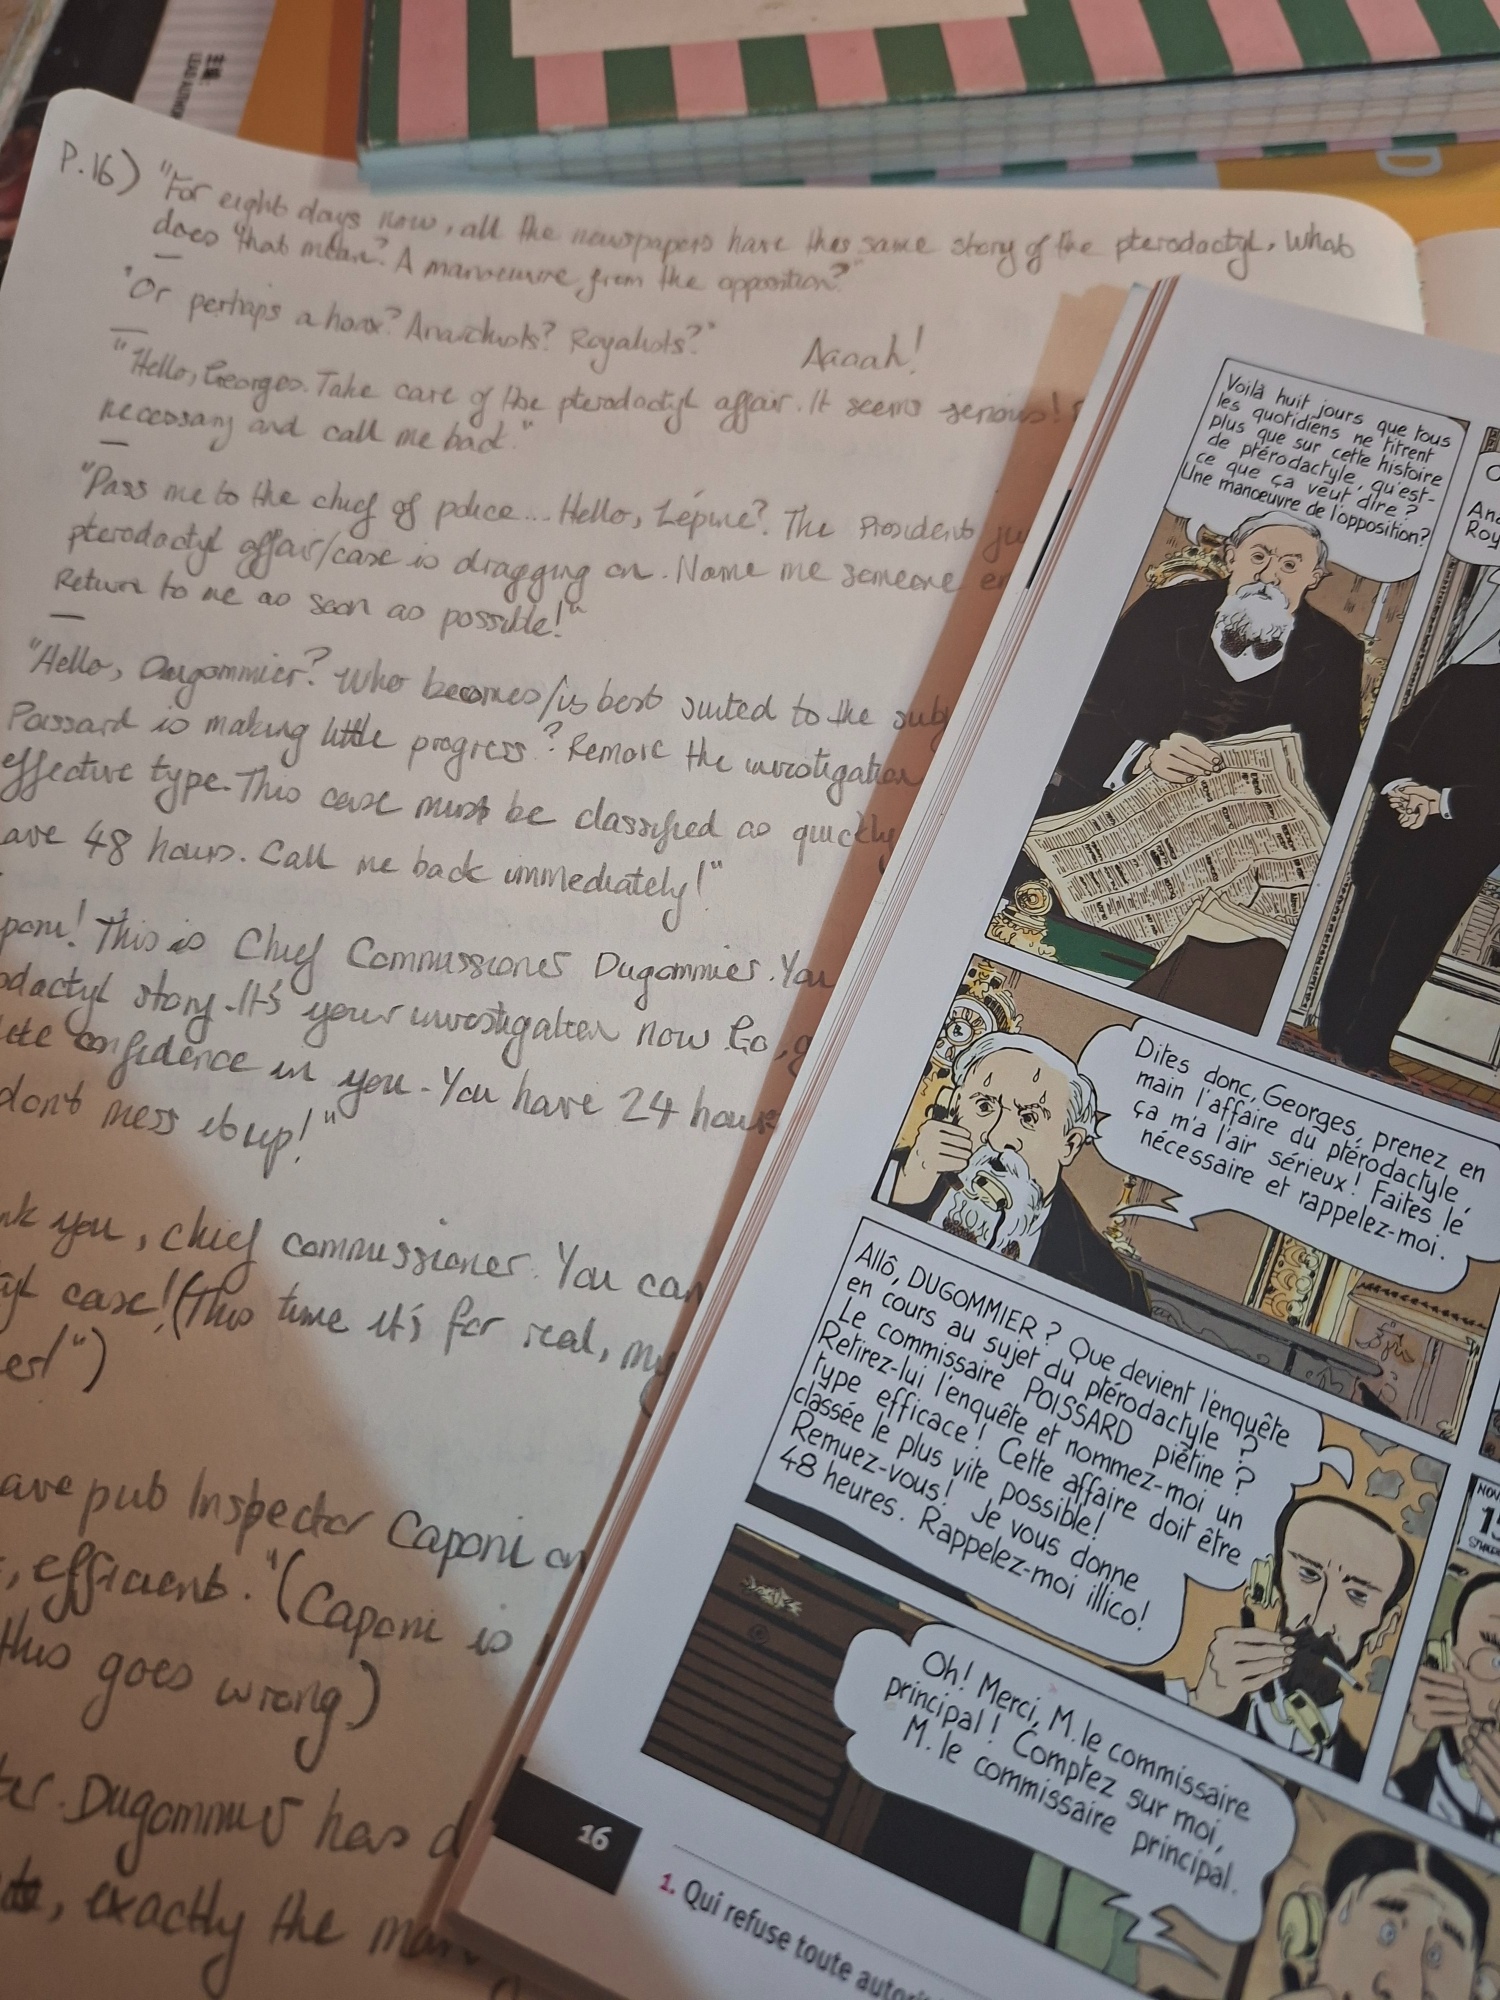 主編:
LEAD AUTHOR
P.16) "For eight days now, all the newspapers have this same story of the pterodactyl. What
does that mean? A manoeuvre from the opposition?"
"Or perhaps a hoax? Anarchists? Royalists?"
Aaaah!
"Hello, Georges. Take care of the pterodactyl affair. It seems serious!
necessary and call me back."
"Pass me to the chief of police... Hello, Lépine? The President
pterodactyl affair/case is dragging on. Name me someone
Return to me as soon as possible!"
"Hello, Dugommier? Who becomes/is best suited to the
Poissard is making little progress? Remove the investigation
effective type. This case must be classified as quickly
ave 48 hours. Call me back immediately!"
poni! This is Chief Commissioner Dugommier. You
odactyl story. It's your investigation now. Go,
confidence in you. You have 24 hour
don't mess it up!"
nk you, chief commissioner. You can
yl case! (This time it's for real, my
es!")
ave put Inspector Caponi on
, efficient." (Caponi is
this goes wrong)
Dugommier has
, exactly the man
Voilà huit jours que tous
les quotidiens ne titrent
plus que sur cette histoire
de ptérodactyle, qu'est-
ce que ça veut dire ?
Une manœuvre de l'opposition?
O
Ana
Roy
Dites donc, Georges, prenez en
main l'affaire du ptérodactyle,
ça m'a l'air sérieux! Faites le
nécessaire et rappelez-moi.
Allô, DUGOMMIER ? Que devient l'enquête
en cours au sujet du ptérodactyle ?
Le commissaire POISSARD piétine ?
Retirez-lui l'enquête et nommez-moi un
type efficace ! Cette affaire doit être
classée le plus vite possible!
Remuez-vous! Je vous donne
48 heures. Rappelez-moi illico!
NOV
Oh! Merci, M. le commissaire
principal ! Comptez sur moi,
M. le commissaire principal.
16
1. Qui refuse toute autori